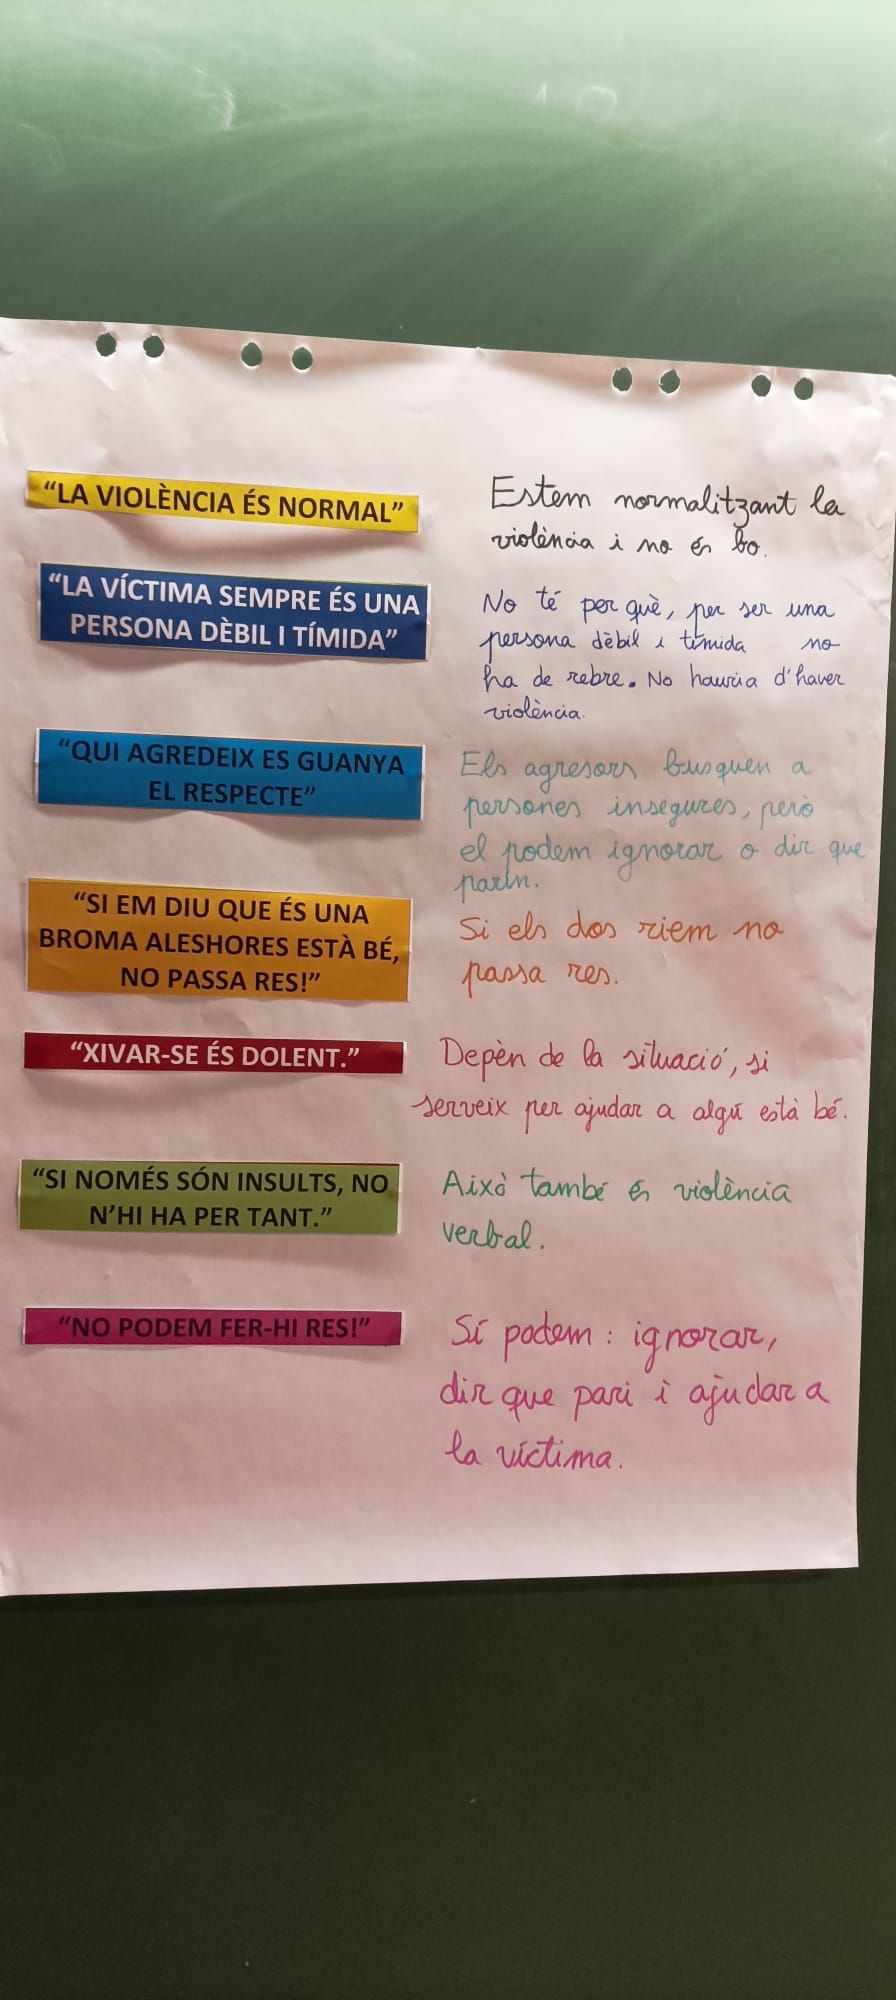 “LA VIOLÈNCIA ÉS NORMAL”
Estem normalitzant la
violència i no és bo.
“LA VÍCTIMA SEMPRE ÉS UNA
PERSONA DÈBIL I TÍMIDA”
No té per què, per ser una
persona dèbil i tímida no
ha de rebre. No hauria d'haver
violència.
“QUI AGREDEIX ES GUANYA
EL RESPECTE”
Els agresors busquen a
persones insegures, però
el podem ignorar o dir que
parin.
“SI EM DIU QUE ÉS UNA
BROMA ALESHORES ESTÀ BÉ,
NO PASSA RES!”
Si els dos riem no
passa res.
“XIVAR-SE ÉS DOLENT.”
Depèn de la situació, si
serveix per ajudar a algú està bé.
“SI NOMÉS SÓN INSULTS, NO
N’HI HA PER TANT.”
Això també és violència
verbal.
“NO PODEM FER-HI RES!”
Sí podem: ignorar,
dir que pari i ajudar a
la víctima.